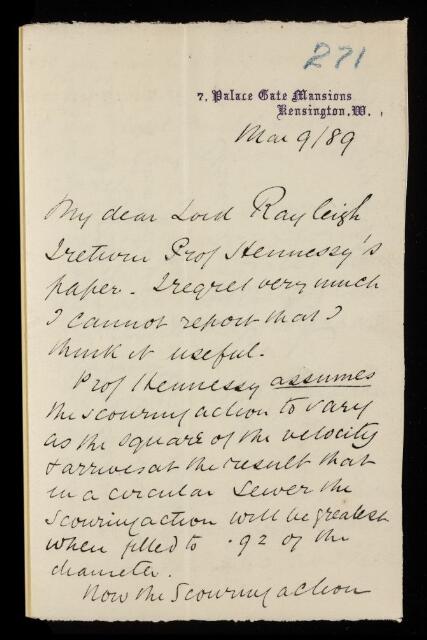 271
7, Palace Gate Mansions
Kensington, W.
Mar 9/89
My dear Lord Rayleigh
I return Prof Hennessy's
paper. I regret very much
I cannot report that I
think it useful.
Prof Hennessy assumes
the scouring action to vary
as the square of the velocity
& arrives at the result that
in a circular sewer the
scouring action will be greatest
when filled to .92 of the
diameter.
Now the scouring action